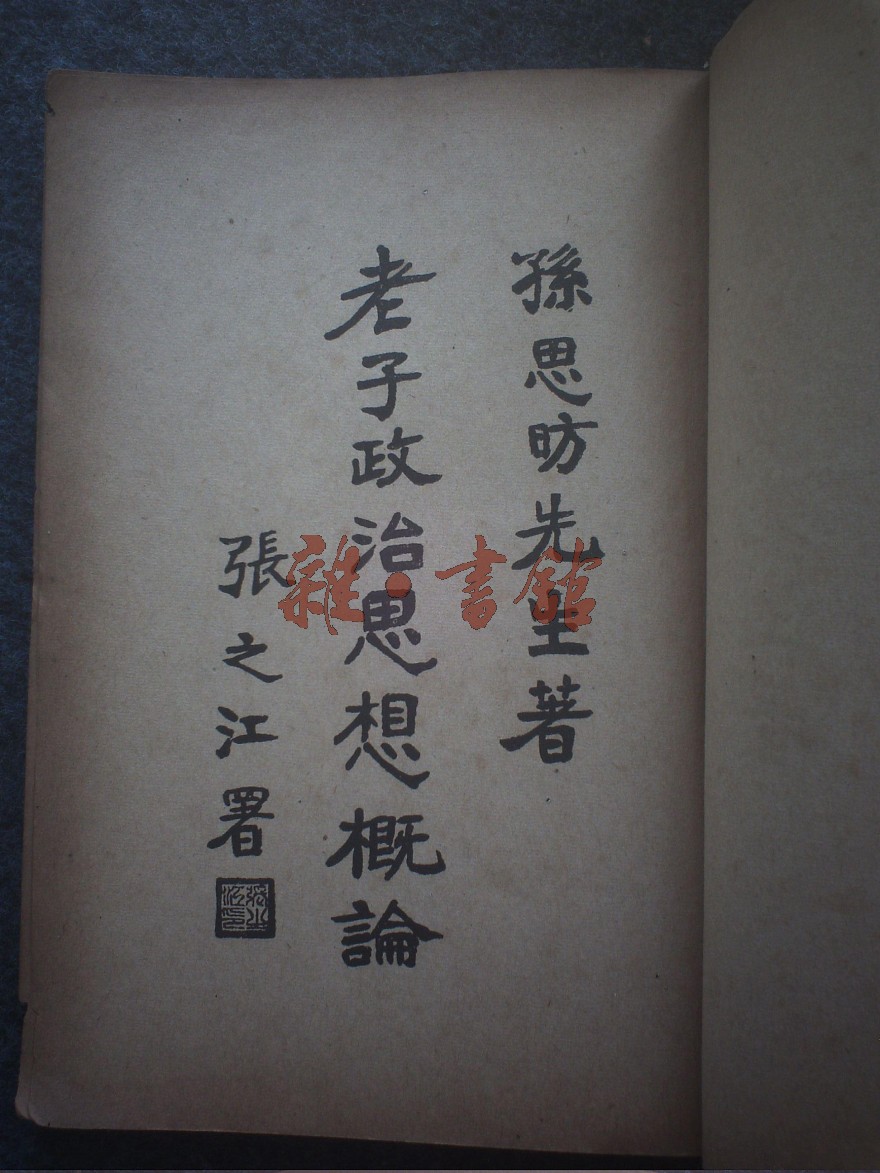 孫思昉先生著
老子政治思想概論
張之江署
張之江印
雜·書館